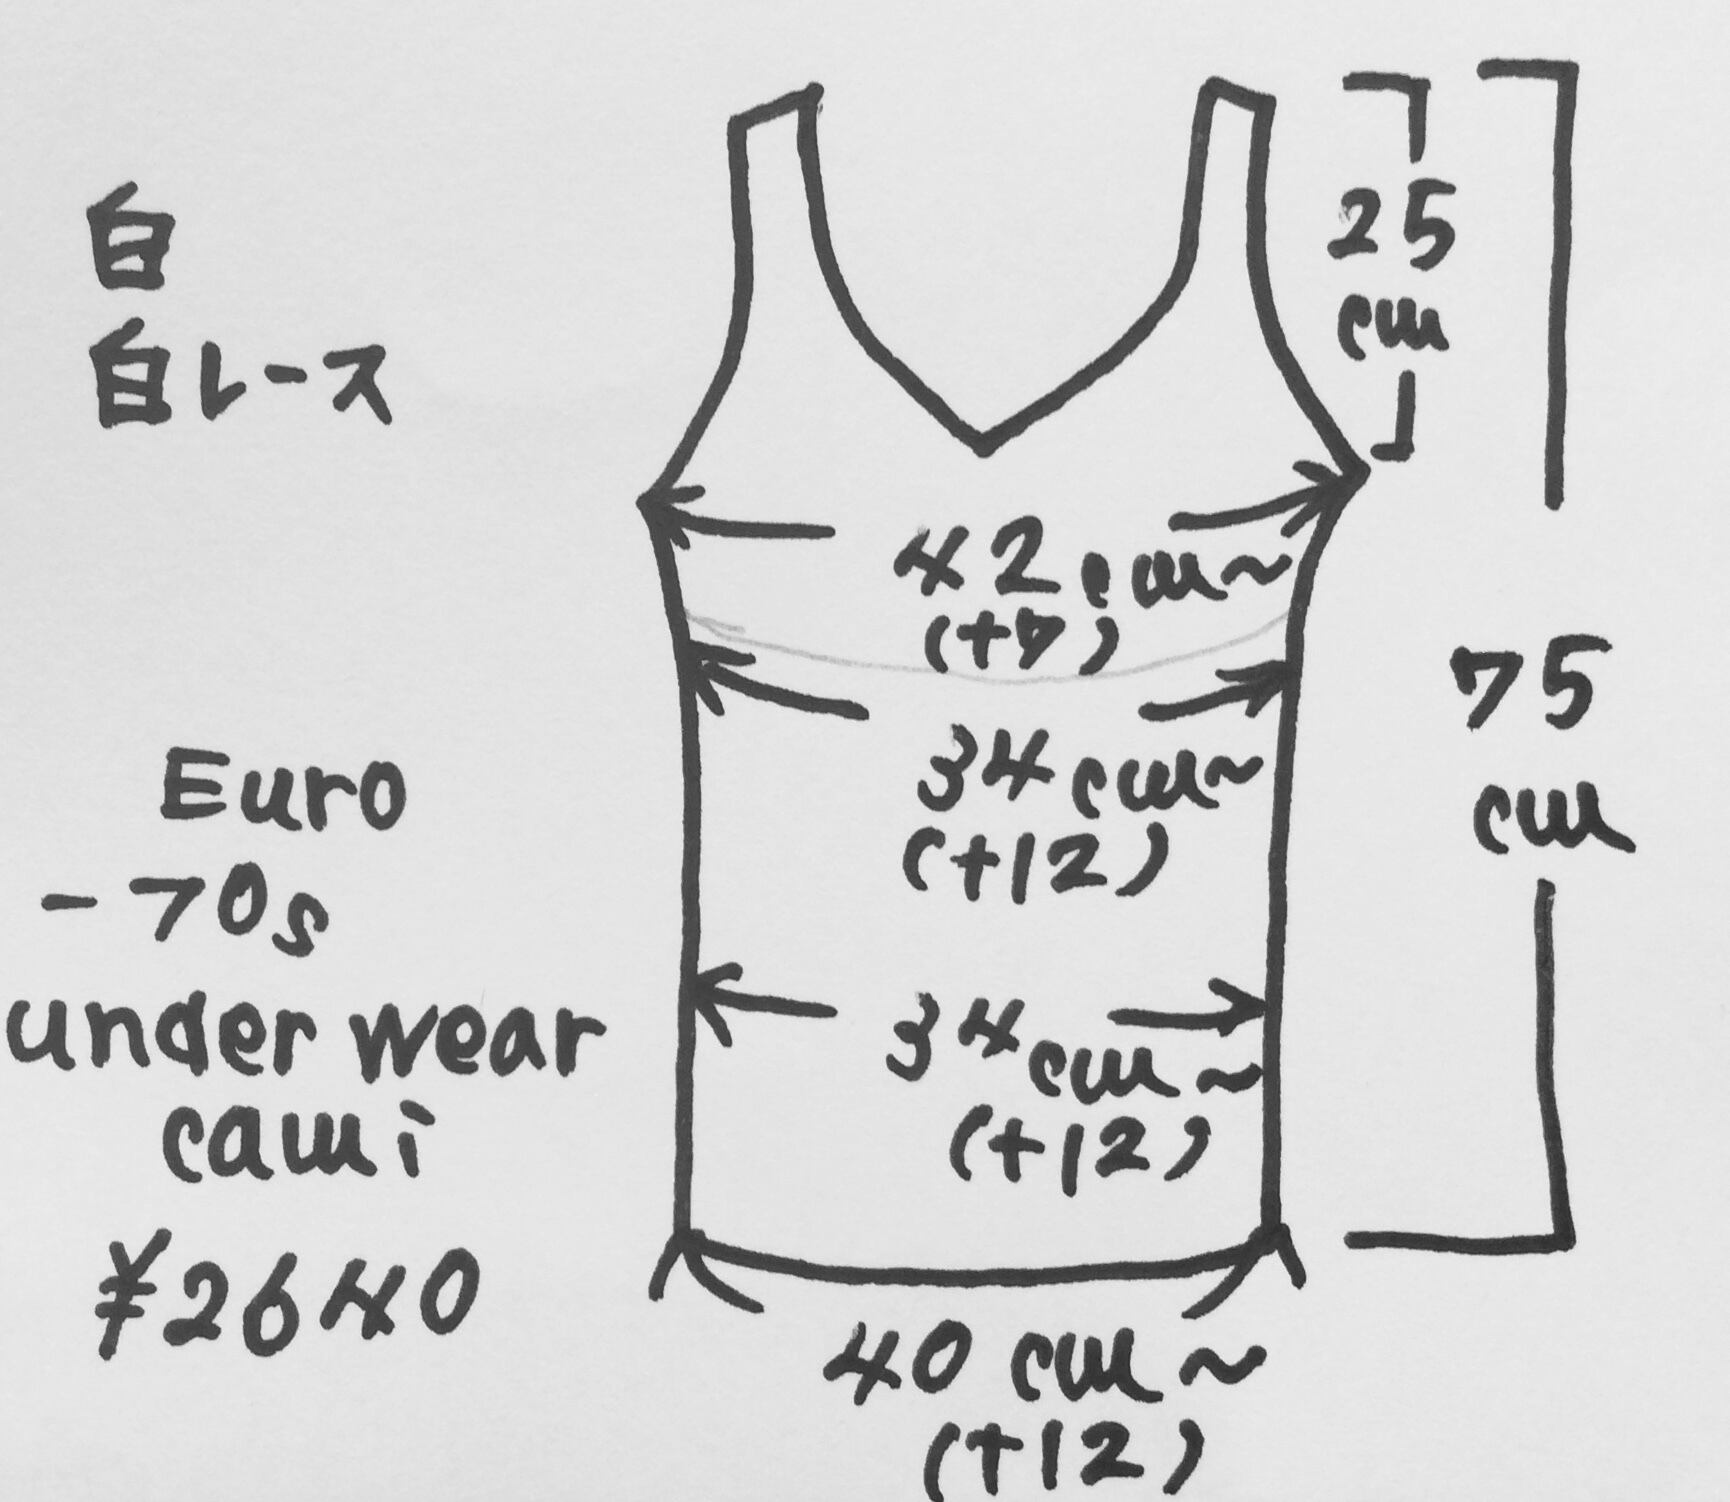 白
白レース
Euro
-70s
under wear
cami
¥2640
25
cm
75
cm
42cm~
34cm~
(+12)
34cm~
(+12)
40cm~
(+12)